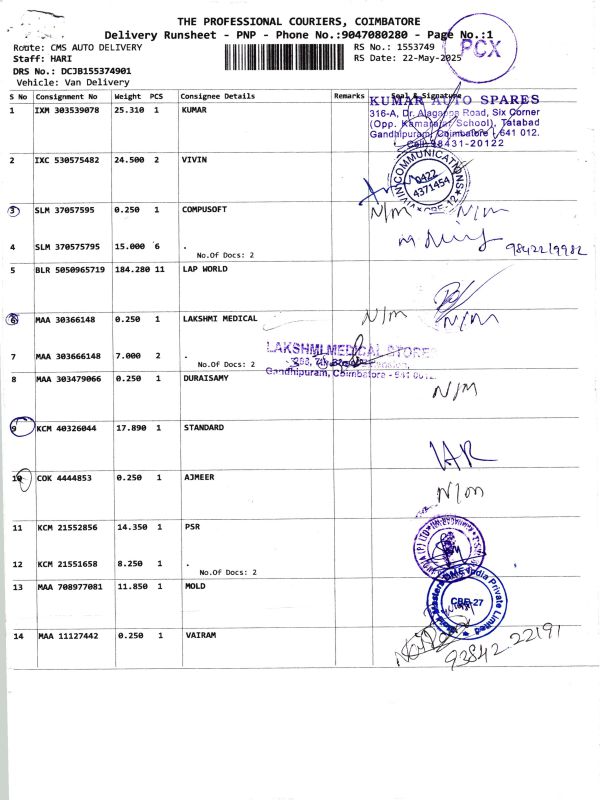 THE PROFESSIONAL COURIERS, COIMBATORE
Delivery Runsheet - PNP - Phone No.:9047080280 - Page No.:1
PCX
Route: CMS AUTO DELIVERY RS No.: 1553749
Staff: HARI RS Date: 22-May-2025
DRS No.: DCJB155374901
Vehicle: Van Delivery
S No Consignment No Weight PCS Consignee Details Remarks Seal & Signature
1 IXM 303539078 25.310 1 KUMAR
KUMAR AUTO SPARES
316-A, Dr. Alagappa Road, Six Corner
(Opp. Kamarajar School), Tatabad
Gandhipuram, Coimbatore - 641 012.
Cell: 98431-20122
2 IXC 530575482 24.500 2 VIVIN
VIVIN COMMUNICATIONS
0422
4371454
CBE-12
3 SLM 37057595 0.250 1 COMPUSOFT N/M N/M
4 SLM 370575795 15.000 6 .
No.Of Docs: 2
9842219982
5 BLR 5050965719 184.280 11 LAP WORLD
6 MAA 30366148 0.250 1 LAKSHMI MEDICAL N/M N/M
7 MAA 303666148 7.000 2 .
No.Of Docs: 2
LAKSHMI MEDICAL STORES
Gandhipuram, Coimbatore - 641 012.
8 MAA 303479066 0.250 1 DURAISAMY N/M
9 KCM 40326044 17.890 1 STANDARD
10 COK 4444853 0.250 1 AJMEER N/M
11 KCM 21552856 14.350 1 PSR
12 KCM 21551658 8.250 1 .
No.Of Docs: 2
13 MAA 708977081 11.850 1 MOLD
India Private Limited
CBE-27
14 MAA 11127442 0.250 1 VAIRAM
93842 22191